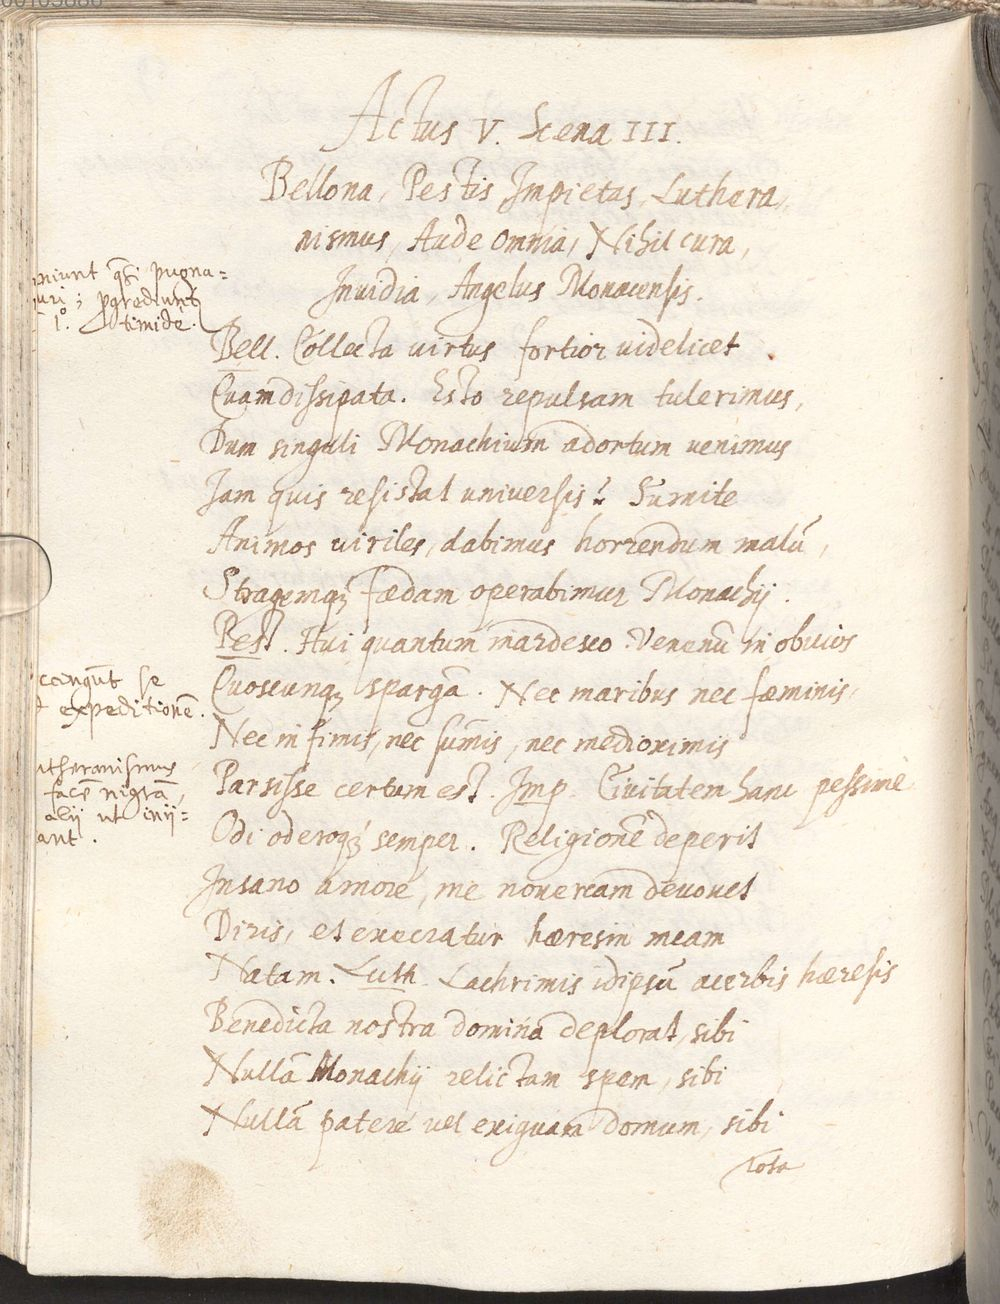 Actus V. Scena III.
Bellona, Pestis Impietas, Luthera,
nismus, Aude omnia, Nihil cura,
Inuidia, Angelus Monacensis.
niunt qsi pugna=
uri; pgrediunt
1º. timide.
Bell. Collecta uirtus fortior uidelicet
Quam dissipata. Esto repulsam tulerimus,
Dum singuli Monachium adortum uenimus
Jam quis resistat uniuersis? Sumite
Animos uiriles, dabimus horrendum malū,
Stragemqȝ fædam operabimur Monachij.
Pest. Hui quantum inardesco. Venenū in obuios
Quoscunqȝ spargā. Nec maribus nec fæminis,
cingūt se
expeditionē.
Nec infimis, nec sum̄is, nec medioximis
utheranismus
facē nigrā,
alij ut inij=
ant.
Parsisse certum est. Imp. Ciuitatem hanc pessime
Odi oderoqȝ semper. Religionē deperit
Insano amore, me nouercam deuouet
Diris, et execratur hæresin meam
Natam. Luth. Lachrimis idipsū acerbis hæresis
Benedicta nostra domina deplorat, sibi
Nullā Monachij relictam spem, sibi
Nullā patere uel exiguam domum, sibi
Tota